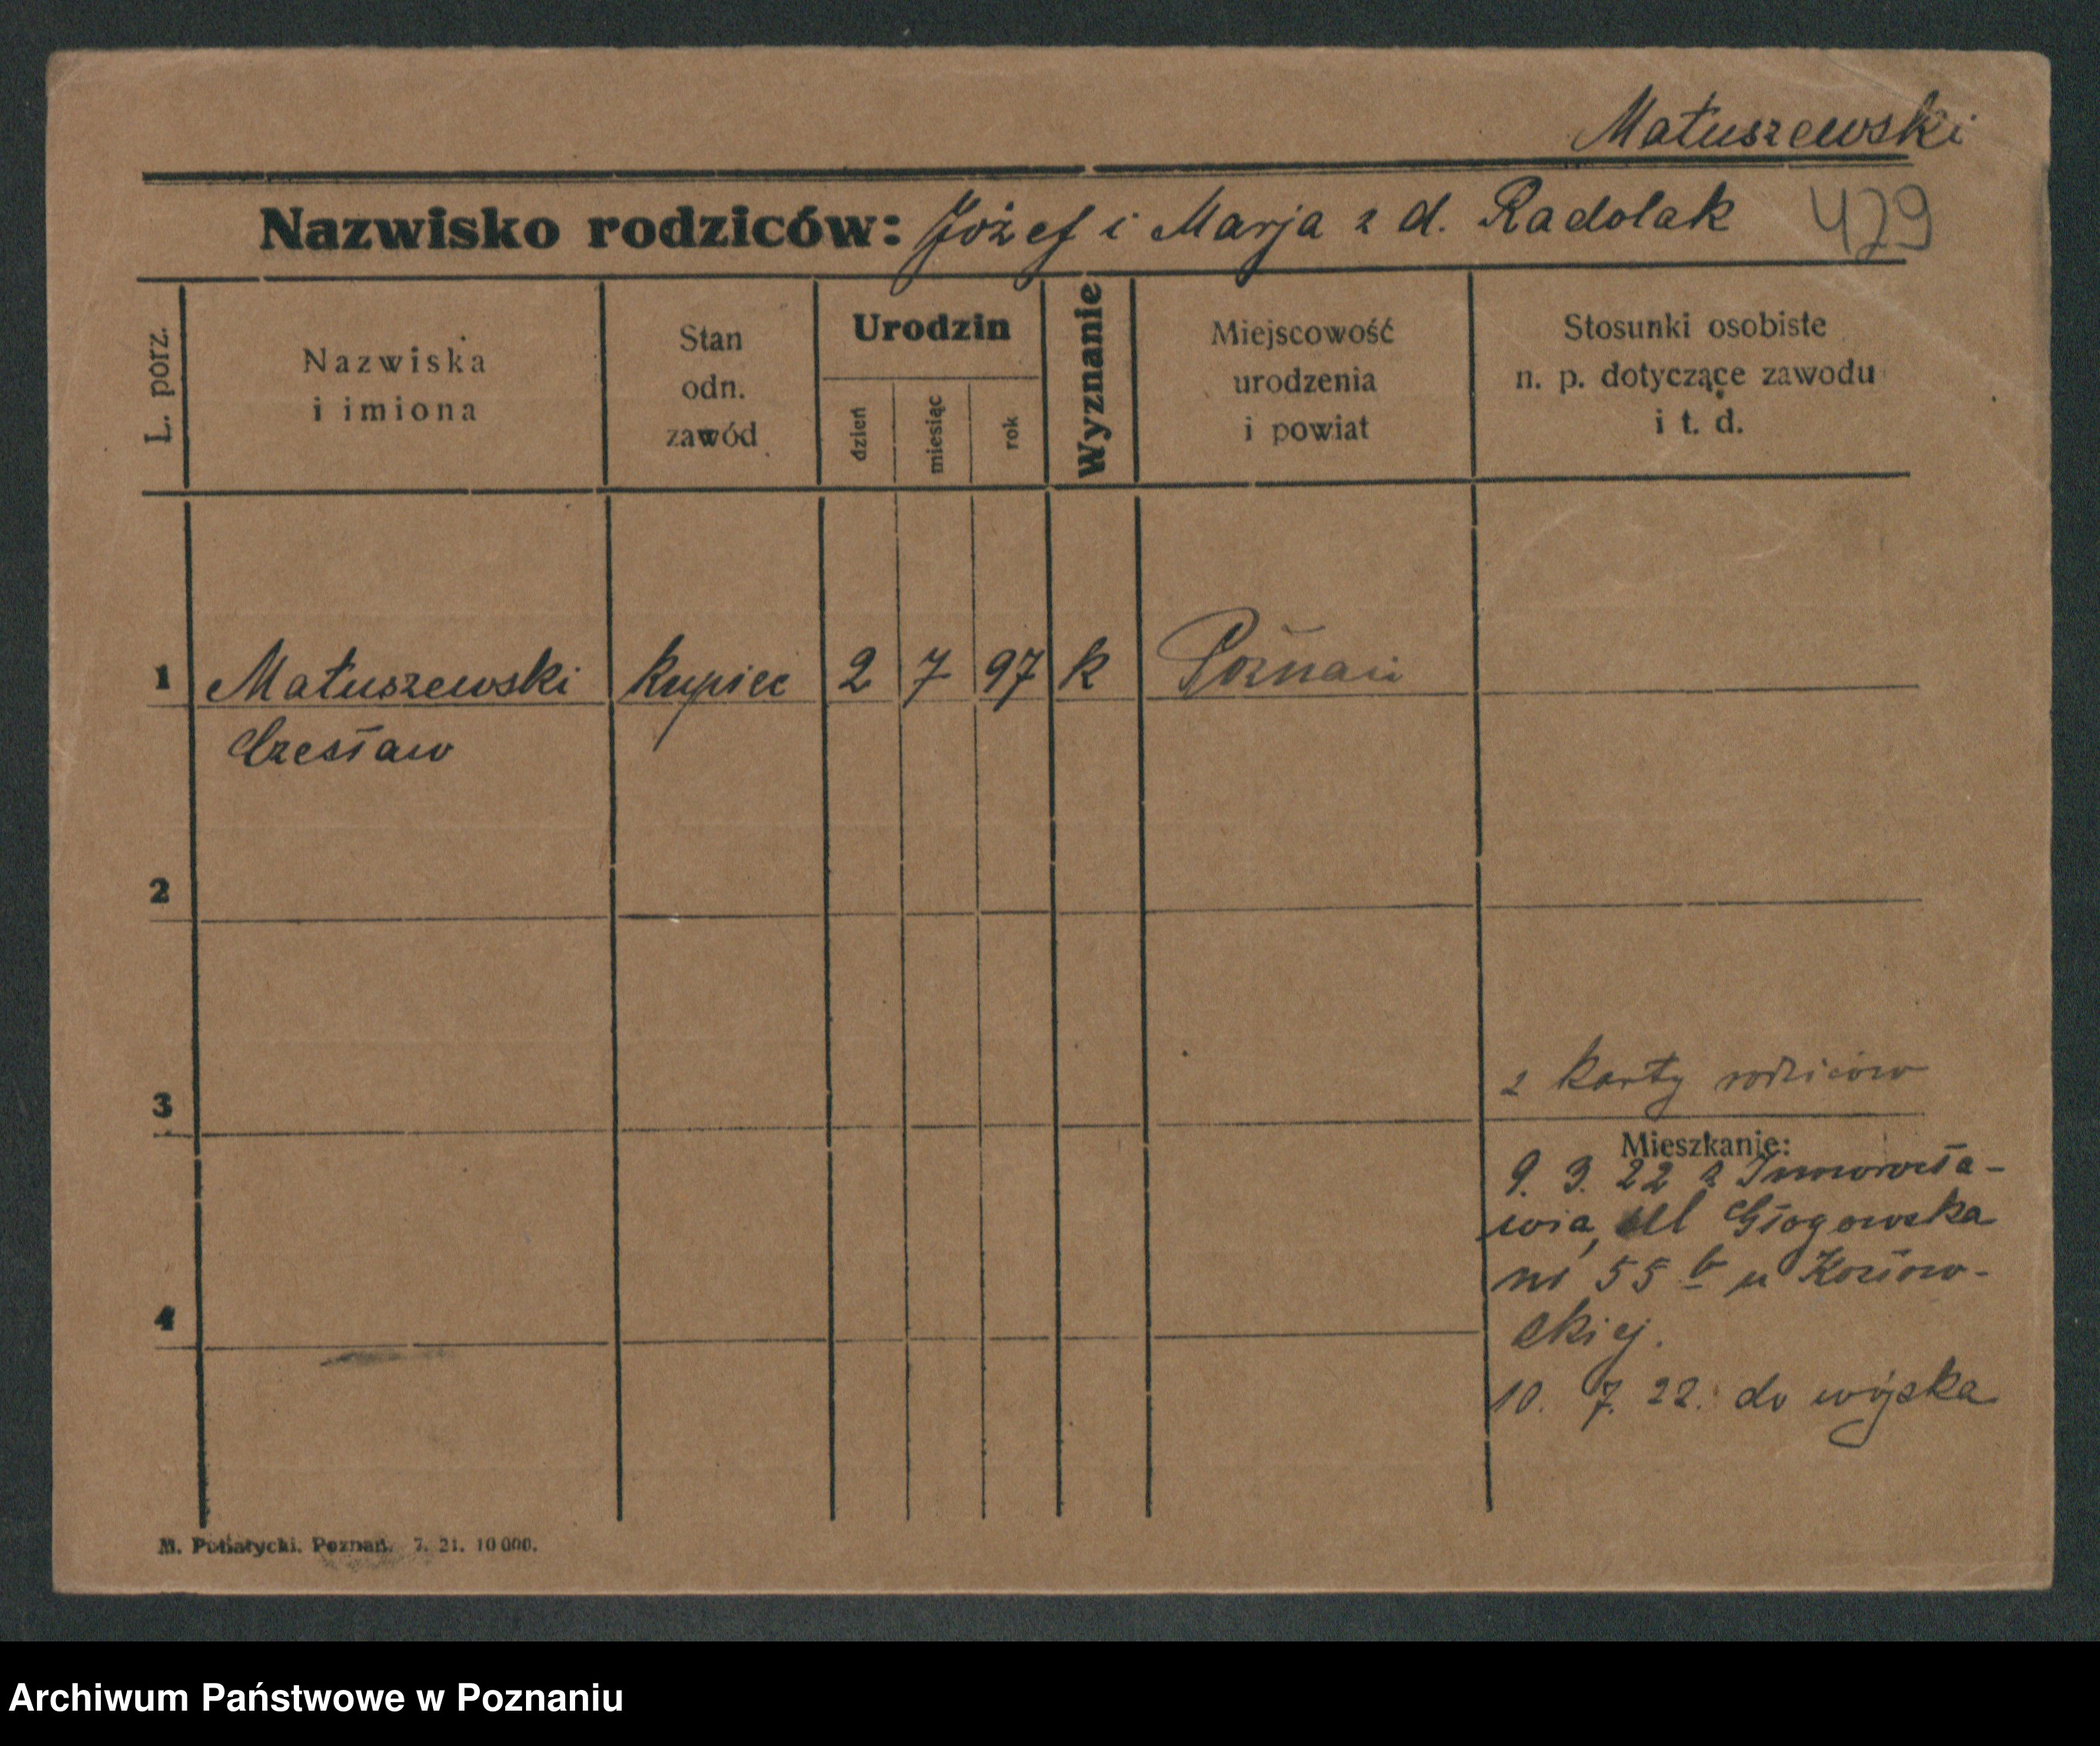 Matuszewski
Nazwisko rodziców: Józef i Marja z d. Radolak 429
L. porz.
Nazwiska
i imiona
Stan
odn.
zawód
Urodzin
dzień
miesiąc
rok
Wyznanie
Miejscowość
urodzenia
i powiat
Stosunki osobiste
n. p. dotyczące zawodu
i t. d.
1 Matuszewski kupiec 2 7 97 k Poznań
Czesław
2
3
z karty rodziców
Mieszkanie:
9. 3. 22 z Inowrocła-
wia, ul Głogowska
nr 55 b u Kozłow-
skiej.
4
10. 7. 22. do wojska
M. Putiatycki. Poznań. 7. 21. 10 000.
Archiwum Państwowe w Poznaniu